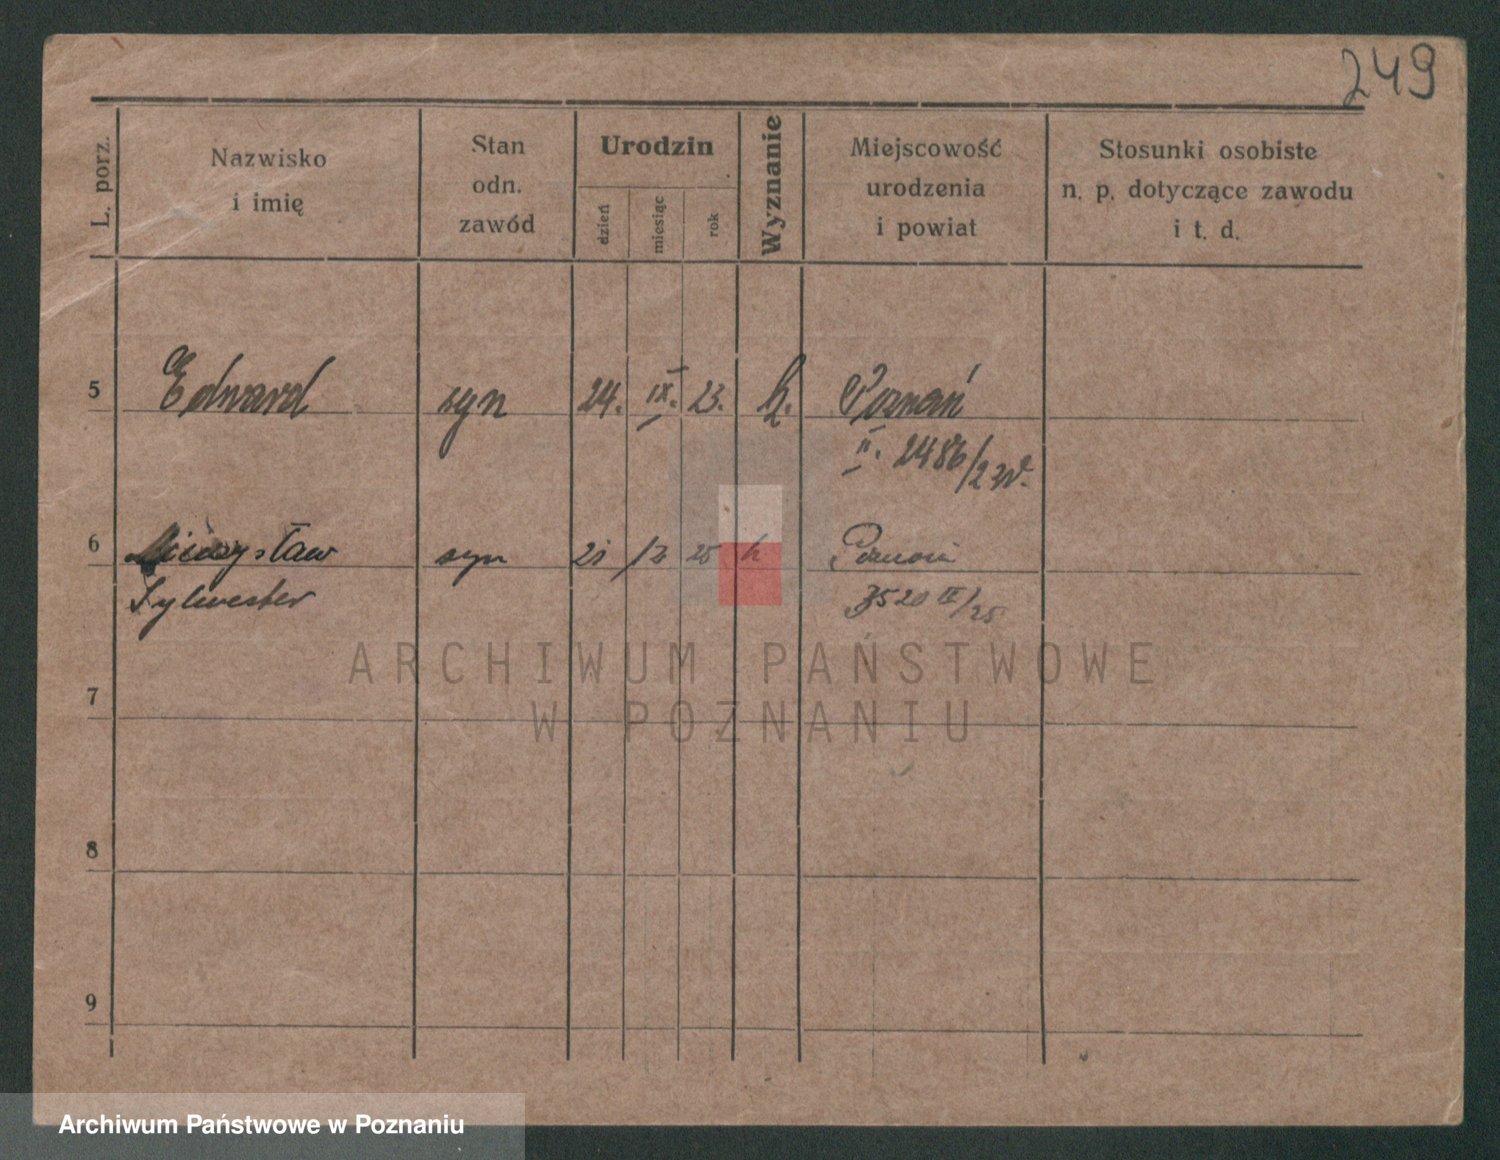 249
L. porz.
Nazwisko
i imię
Stan
odn.
zawód
Urodzin
dzień
miesiąc
rok
Wyznanie
Miejscowość
urodzenia
i powiat
Stosunki osobiste
n. p. dotyczące zawodu
i t. d.
5 Edward syn 24. IX. 23. k. Poznań
II. 2486/23
6 Mieczysław syn 21 12 25 k Poznań
Sylwester 3520 IV/25
ARCHIWUM PAŃSTWOWE
W POZNANIU
7
8
9
Archiwum Państwowe w Poznaniu